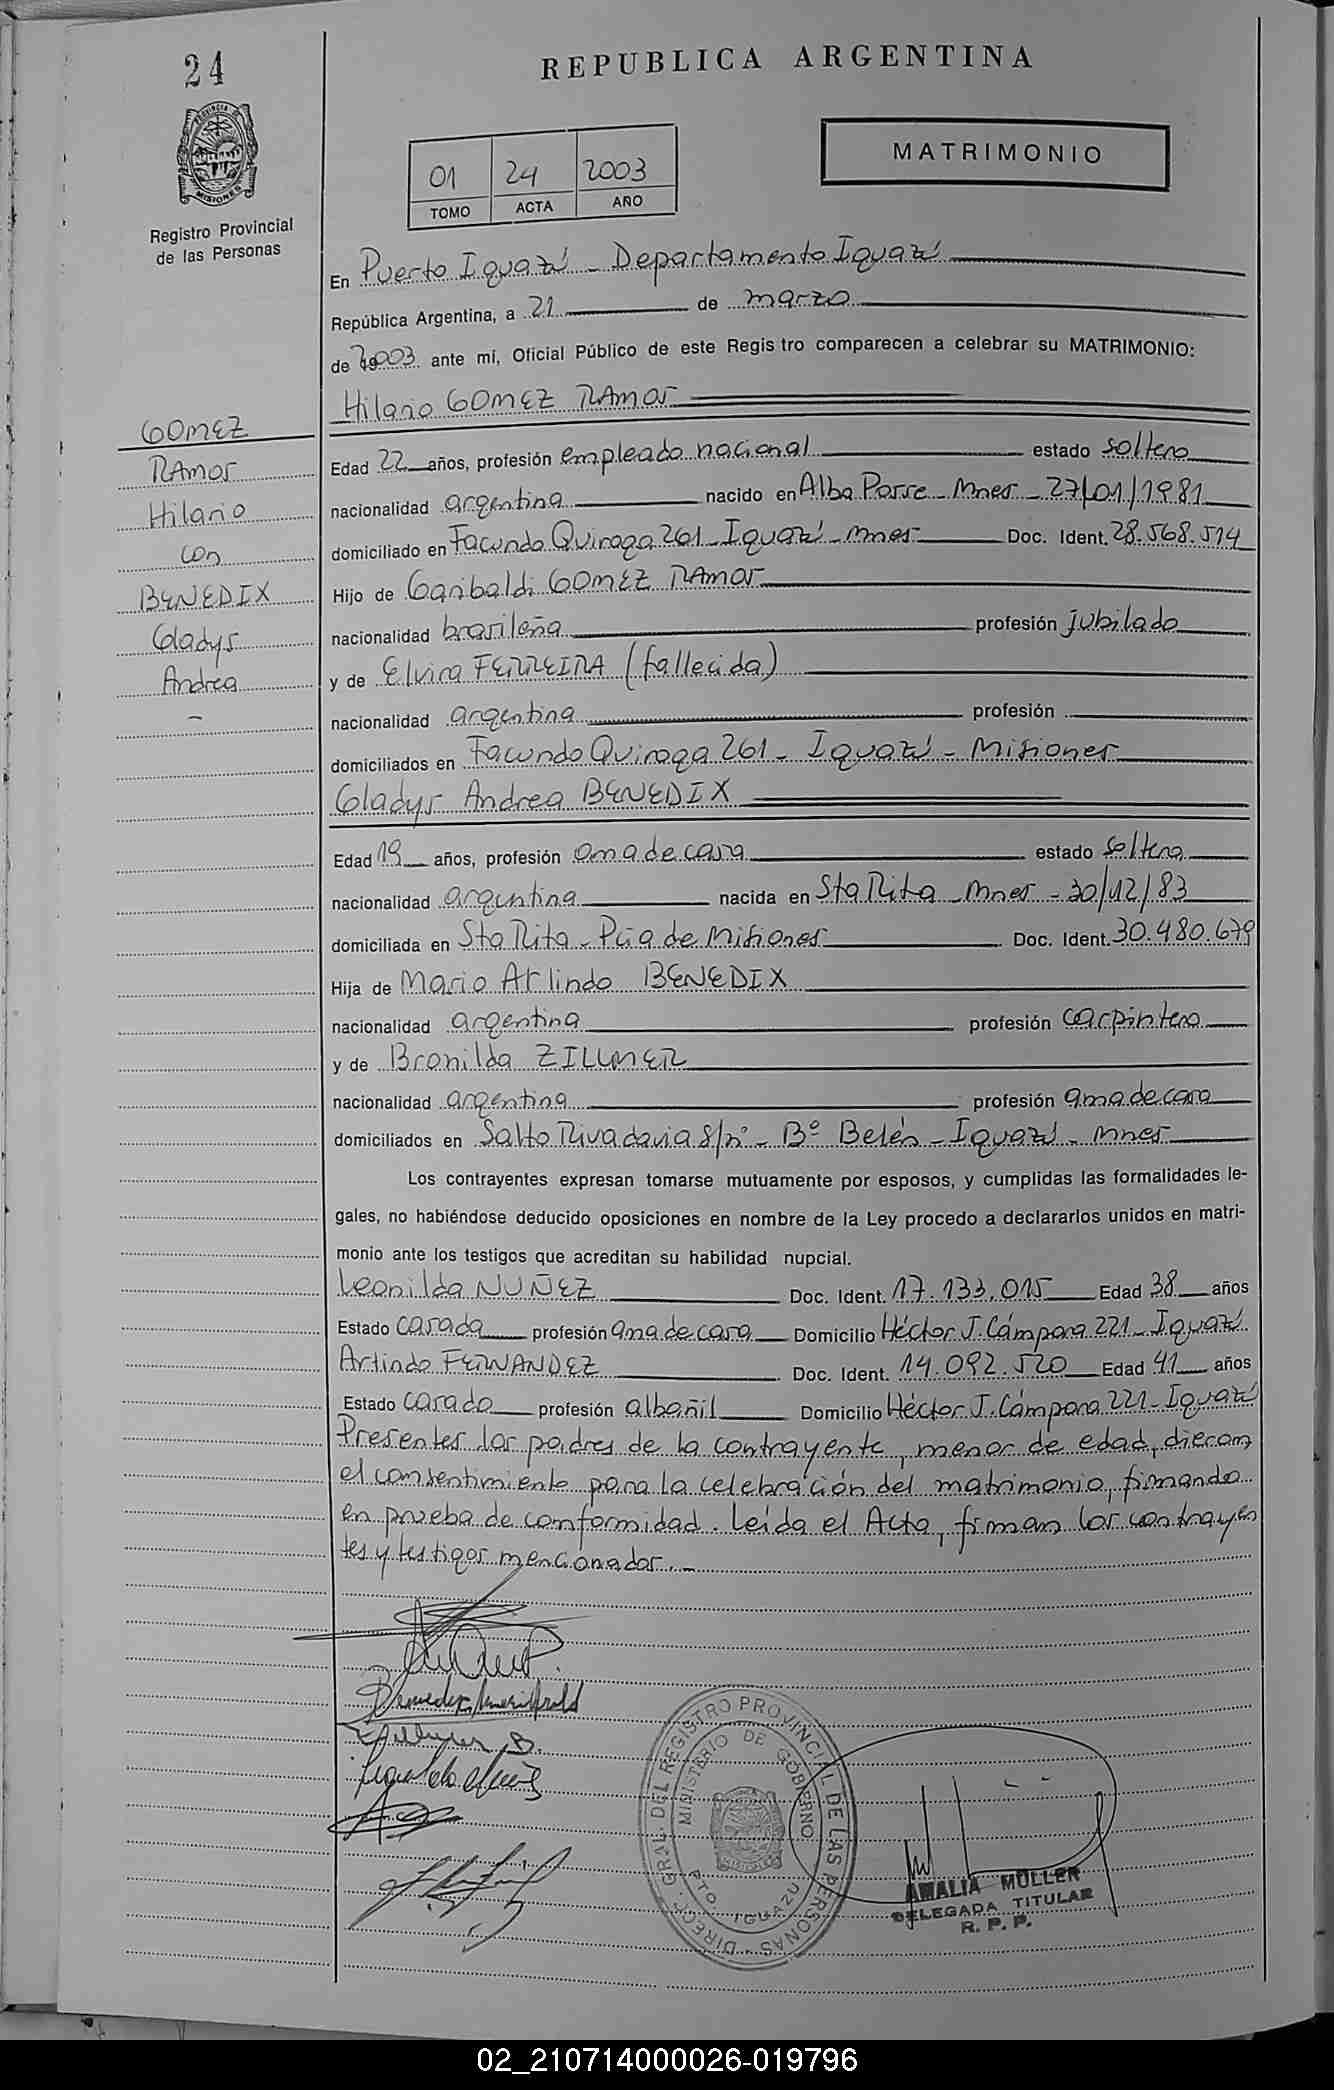 24
REPUBLICA ARGENTINA
PROVINCIA DE
MISIONES
Registro Provincial
de las Personas
01 24 2003
TOMO ACTA AÑO
MATRIMONIO
En Puerto Iguazú - Departamento Iguazú
República Argentina, a 21 de marzo
de 2003 ante mi, Oficial Público de este Regis tro comparecen a celebrar su MATRIMONIO:
Hilario GOMEZ RAMOS
GOMEZ
RAMOS
Hilario
con
BENEDIX
Gladys
Andrea
Edad 22 años, profesión empleado nacional estado soltero
nacionalidad argentina nacido en Alba Posse - Mnes - 27/01/1981
domiciliado en Facundo Quiroga 261 - Iguazú - Mnes Doc. Ident. 28.568.514
Hijo de Garibaldi GOMEZ RAMOS
nacionalidad brasileña profesión jubilado
y de Elvira FERREIRA (fallecida)
nacionalidad argentina profesión
domiciliados en Facundo Quiroga 261 - Iguazú - Misiones
Gladys Andrea BENEDIX
Edad 19 años, profesión ama de casa estado soltera
nacionalidad argentina nacida en Sta Rita - Mnes - 30/12/83
domiciliada en Sta Rita - Pcia de Misiones Doc. Ident. 30.480.679
Hija de Mario Arlindo BENEDIX
nacionalidad argentina profesión carpintero
y de Bronilda ZILLMER
nacionalidad argentina profesión ama de casa
domiciliados en Salto Rivadavia s/nº - Bº Belén - Iguazú - Mnes
Los contrayentes expresan tomarse mutuamente por esposos, y cumplidas las formalidades le-
gales, no habiéndose deducido oposiciones en nombre de la Ley procedo a declararlos unidos en matri-
monio ante los testigos que acreditan su habilidad nupcial.
Leonilda NUÑEZ Doc. Ident. 17.133.015 Edad 38 años
Estado casada profesión ama de casa Domicilio Héctor J. Cámpora 221 - Iguazú
Arlindo FERNANDEZ Doc. Ident. 14.092.520 Edad 41 años
Estado casado profesión albañil Domicilio Héctor J. Cámpora 221 - Iguazú
Presentes los padres de la contrayente, menor de edad, dieron
el consentimiento para la celebración del matrimonio, firmando
en prueba de conformidad. Leída el Acta, firman los contrayen
tes y testigos mencionados.-
DIREC. GRAL. DEL REGISTRO PROVINCIAL DE LAS PERSONAS
MINISTERIO DE GOBIERNO
MISIONES
PTO. IGUAZU
AMALIA MULLER
DELEGADA TITULAR
R. P. P.
02_210714000026-019796